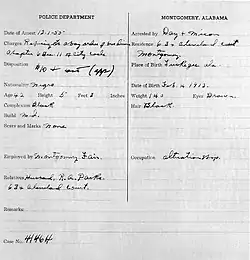 POLICE DEPARTMENT MONTGOMERY, ALABAMA
Date of Arrest 12-1-55 Arrested By Day & Mixon
Charges Refusing to obey orders of bus driver Residence 634 Cleveland Court
Chapter 6 Sec 11 of City Code Montgomery
Disposition Place of Birth Tuskegee Ala.
$10 + cost (app)
Nationality Negro Date of Birth Feb. 4, 1913.
Age 42 Height 5 Feet 3 Inches Weight 140 Eyes Brown
Complexion Black Hair Black
Build Med.
Scars and Marks None
Employed by Montgomery Fair. Occupation
Relatives Husband, R. A. Parks
634 Cleveland Court.
Remarks:
Case No. 4146H